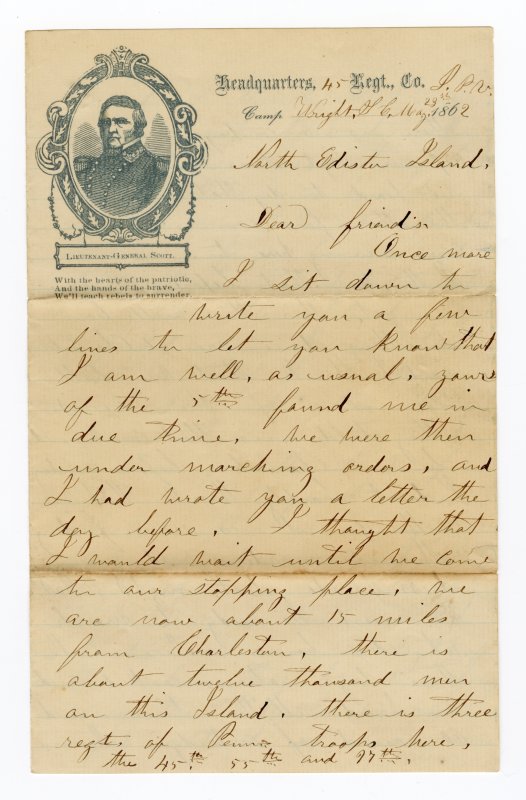 Headquarters, 45 Regt., Co. I. P. V.
Camp Wright, S C, May 29th 1862
LIEUTENANT-GENERAL SCOTT.
With the hearts of the patriotic,
And the hands of the brave,
We'll teach rebels to surrender
North Edisto Island,
Dear friends
Once more
I sit down to
write you a few
lines to let you know that
I am well, as usual, yours
of the 5th found me in
due time, we were then
under marching orders, and
I had wrote you a letter the
day before, I thought that
I would wait until we come
to our stopping place, we
are now about 15 miles
from Charleston, there is
about twelve thousand men
on this Island. there is three
regts of Penna troops here,
the 45th 55th and 97th,